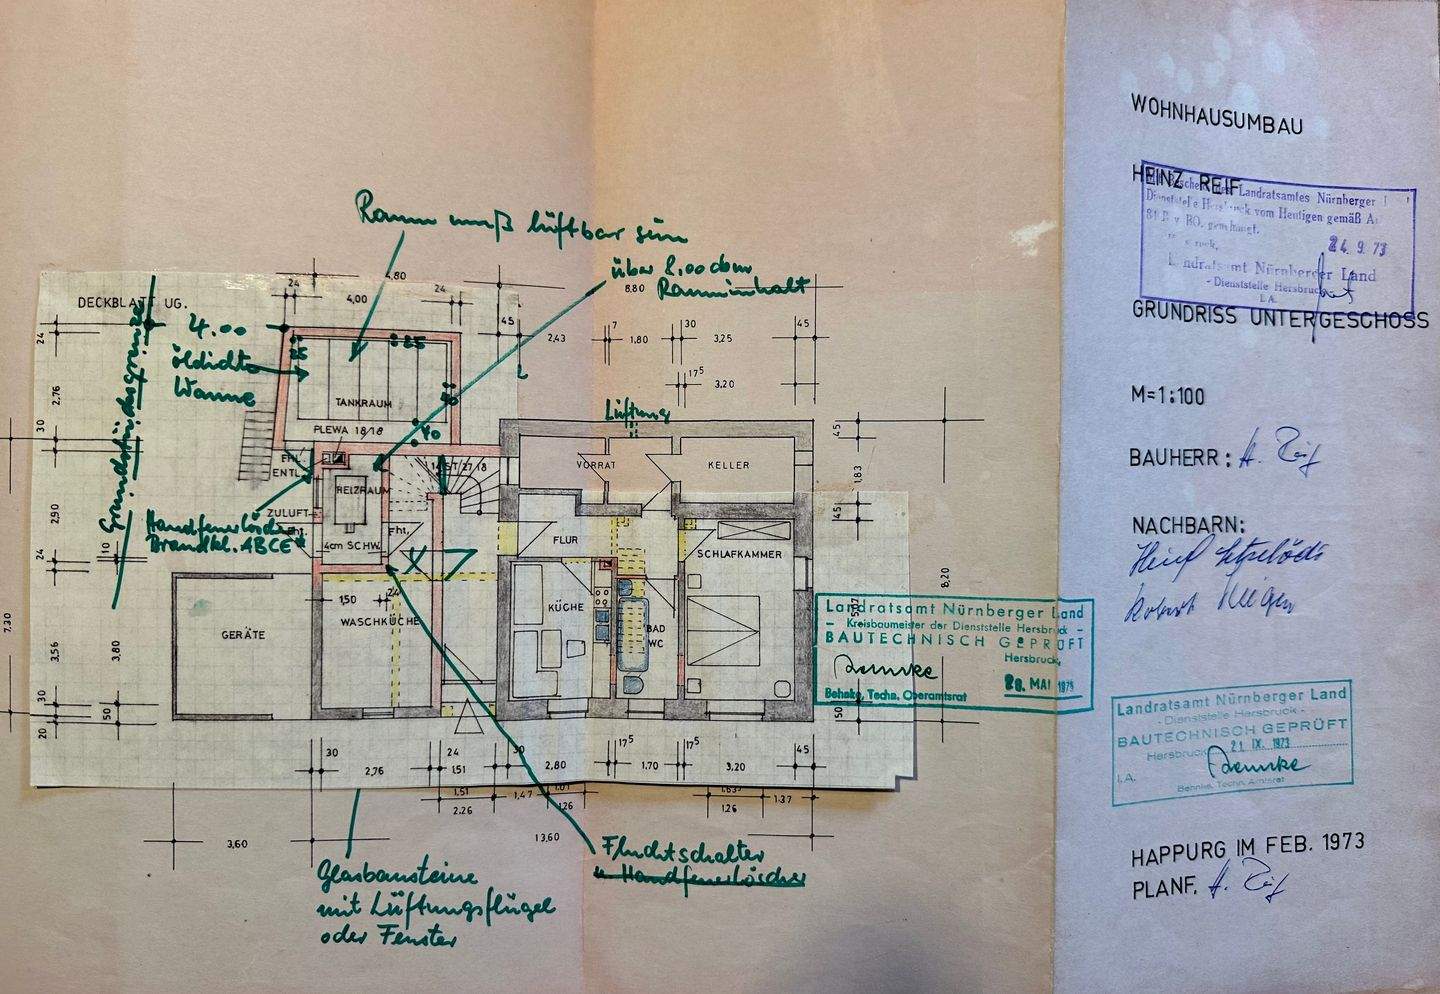 WOHNHAUSUMBAU
HEINZ REIF
Landratsamtes Nürnberger
vom Heutigen gemäß
BO.
24. 9. 73
Landratsamt Nürnberger Land
- Dienststelle Hersbruck -
I.A.
GRUNDRISS UNTERGESCHOSS
M=1:100
BAUHERR: H. Reif
NACHBARN:
Landratsamt Nürnberger Land
- Dienststelle Hersbruck -
BAUTECHNISCH GEPRÜFT
Hersbruck, 21. IX. 1973
I.A. Behnke
Behnke, Techn. Amtsrat
HAPPURG IM FEB. 1973
PLANF. H. Reif
Raum muß lüftbar sein
über 8.00 cbm
Rauminhalt
DECKBLATT UG.
4,80
24
4,00
24
45
8,80
2,43
7
1,80
30
3,25
45
17⁵
3,20
4.00
öldichte
Wanne
Grundstücksgrenze
25
25
40
TANKRAUM
PLEWA 18/18
Lüftung
FHL.
ENTL.
HEIZRAUM
14 ST 27/18
VORRAT
KELLER
ZULUFT
Fht.
Fht.
Handfeuerlöscher
Brandkl. ABCE
4cm SCHW.
FLUR
SCHLAFKAMMER
1,50
24
WASCHKÜCHE
KÜCHE
BAD
WC
GERÄTE
24
2,76
30
2,90
24
10
3,56
3,80
30
50
20
7,30
45
1,83
45
8,20
50
Landratsamt Nürnberger Land
- Kreisbaumeister der Dienststelle Hersbruck -
BAUTECHNISCH GEPRÜFT
Hersbruck,
Behnke
28. MAI 1975
Behnke, Techn. Oberamtsrat
30
2,76
24
1,51
30
2,80
17⁵
1,70
17⁵
3,20
45
1,51
2,26
1,47
1,01
1,26
1,63⁵
1,26
1,37
3,60
13,60
Fluchtschalter
u. Handfeuerlöscher
Glasbausteine
mit Lüftungsflügel
oder Fenster